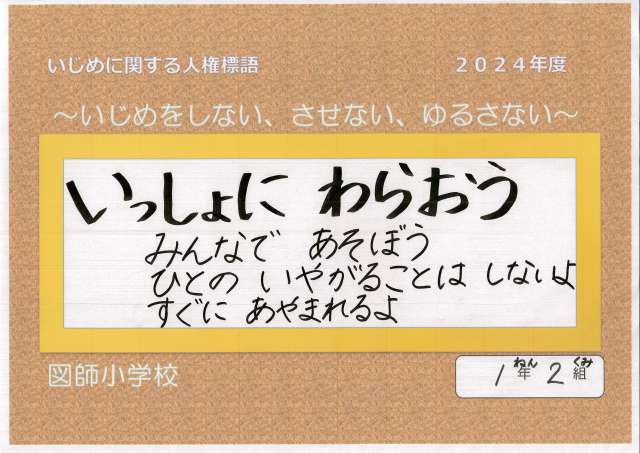 いじめに関する人権標語 ２０２４年度
～いじめをしない、させない、ゆるさない～
いっしょに わらおう
みんなで あそぼう
ひとの いやがることは しないよ
すぐに あやまれるよ
図師小学校
1年ねん 2組くみ